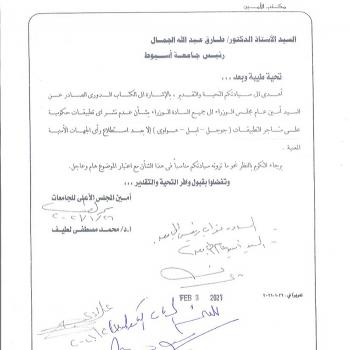 مكتب الأمين
السيد الأستاذ الدكتور/ طارق عبد الله الجمال
رئيس جامعة أسيوط
تحية طيبة وبعد ...
أهدى إلى سيادتكم التحية والتقدير، بالإشارة إلى الكتاب الدورى الصادر عن
السيد أمين عام مجلس الوزراء إلى جميع السادة الوزراء بشأن عدم نشر أى تطبيقات حكومية
على متاجر التطبيقات (جوجل - أبل - هواوى) إلا بعد استطلاع رأى الجهات الأمنية
المعنية.
برجاء التكرم بالنظر نحو ما ترونه سيادتكم مناسباً فى هذا الشأن مع اعتبار الموضوع هام وعاجل.
وتفضلوا بقبول وافر التحية والتقدير ...
أمين المجلس الأعلى للجامعات
أ.د/ محمد مصطفى لطيف
السادة نواب رئيس الجامعة
تحريراً في:
FEB 3 2021